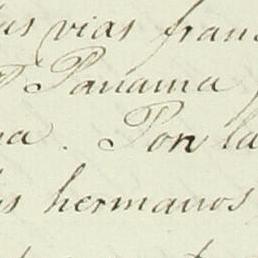 las vias fran
Panama
na. Por la
s hermanos